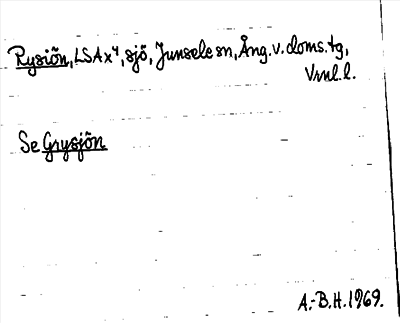 Rysiön, LSA x⁴, sjö, Junsele sn, Ång. v. doms. tg,
Vrnl. l.
Se Grysjön
A.-B.H. 1969.